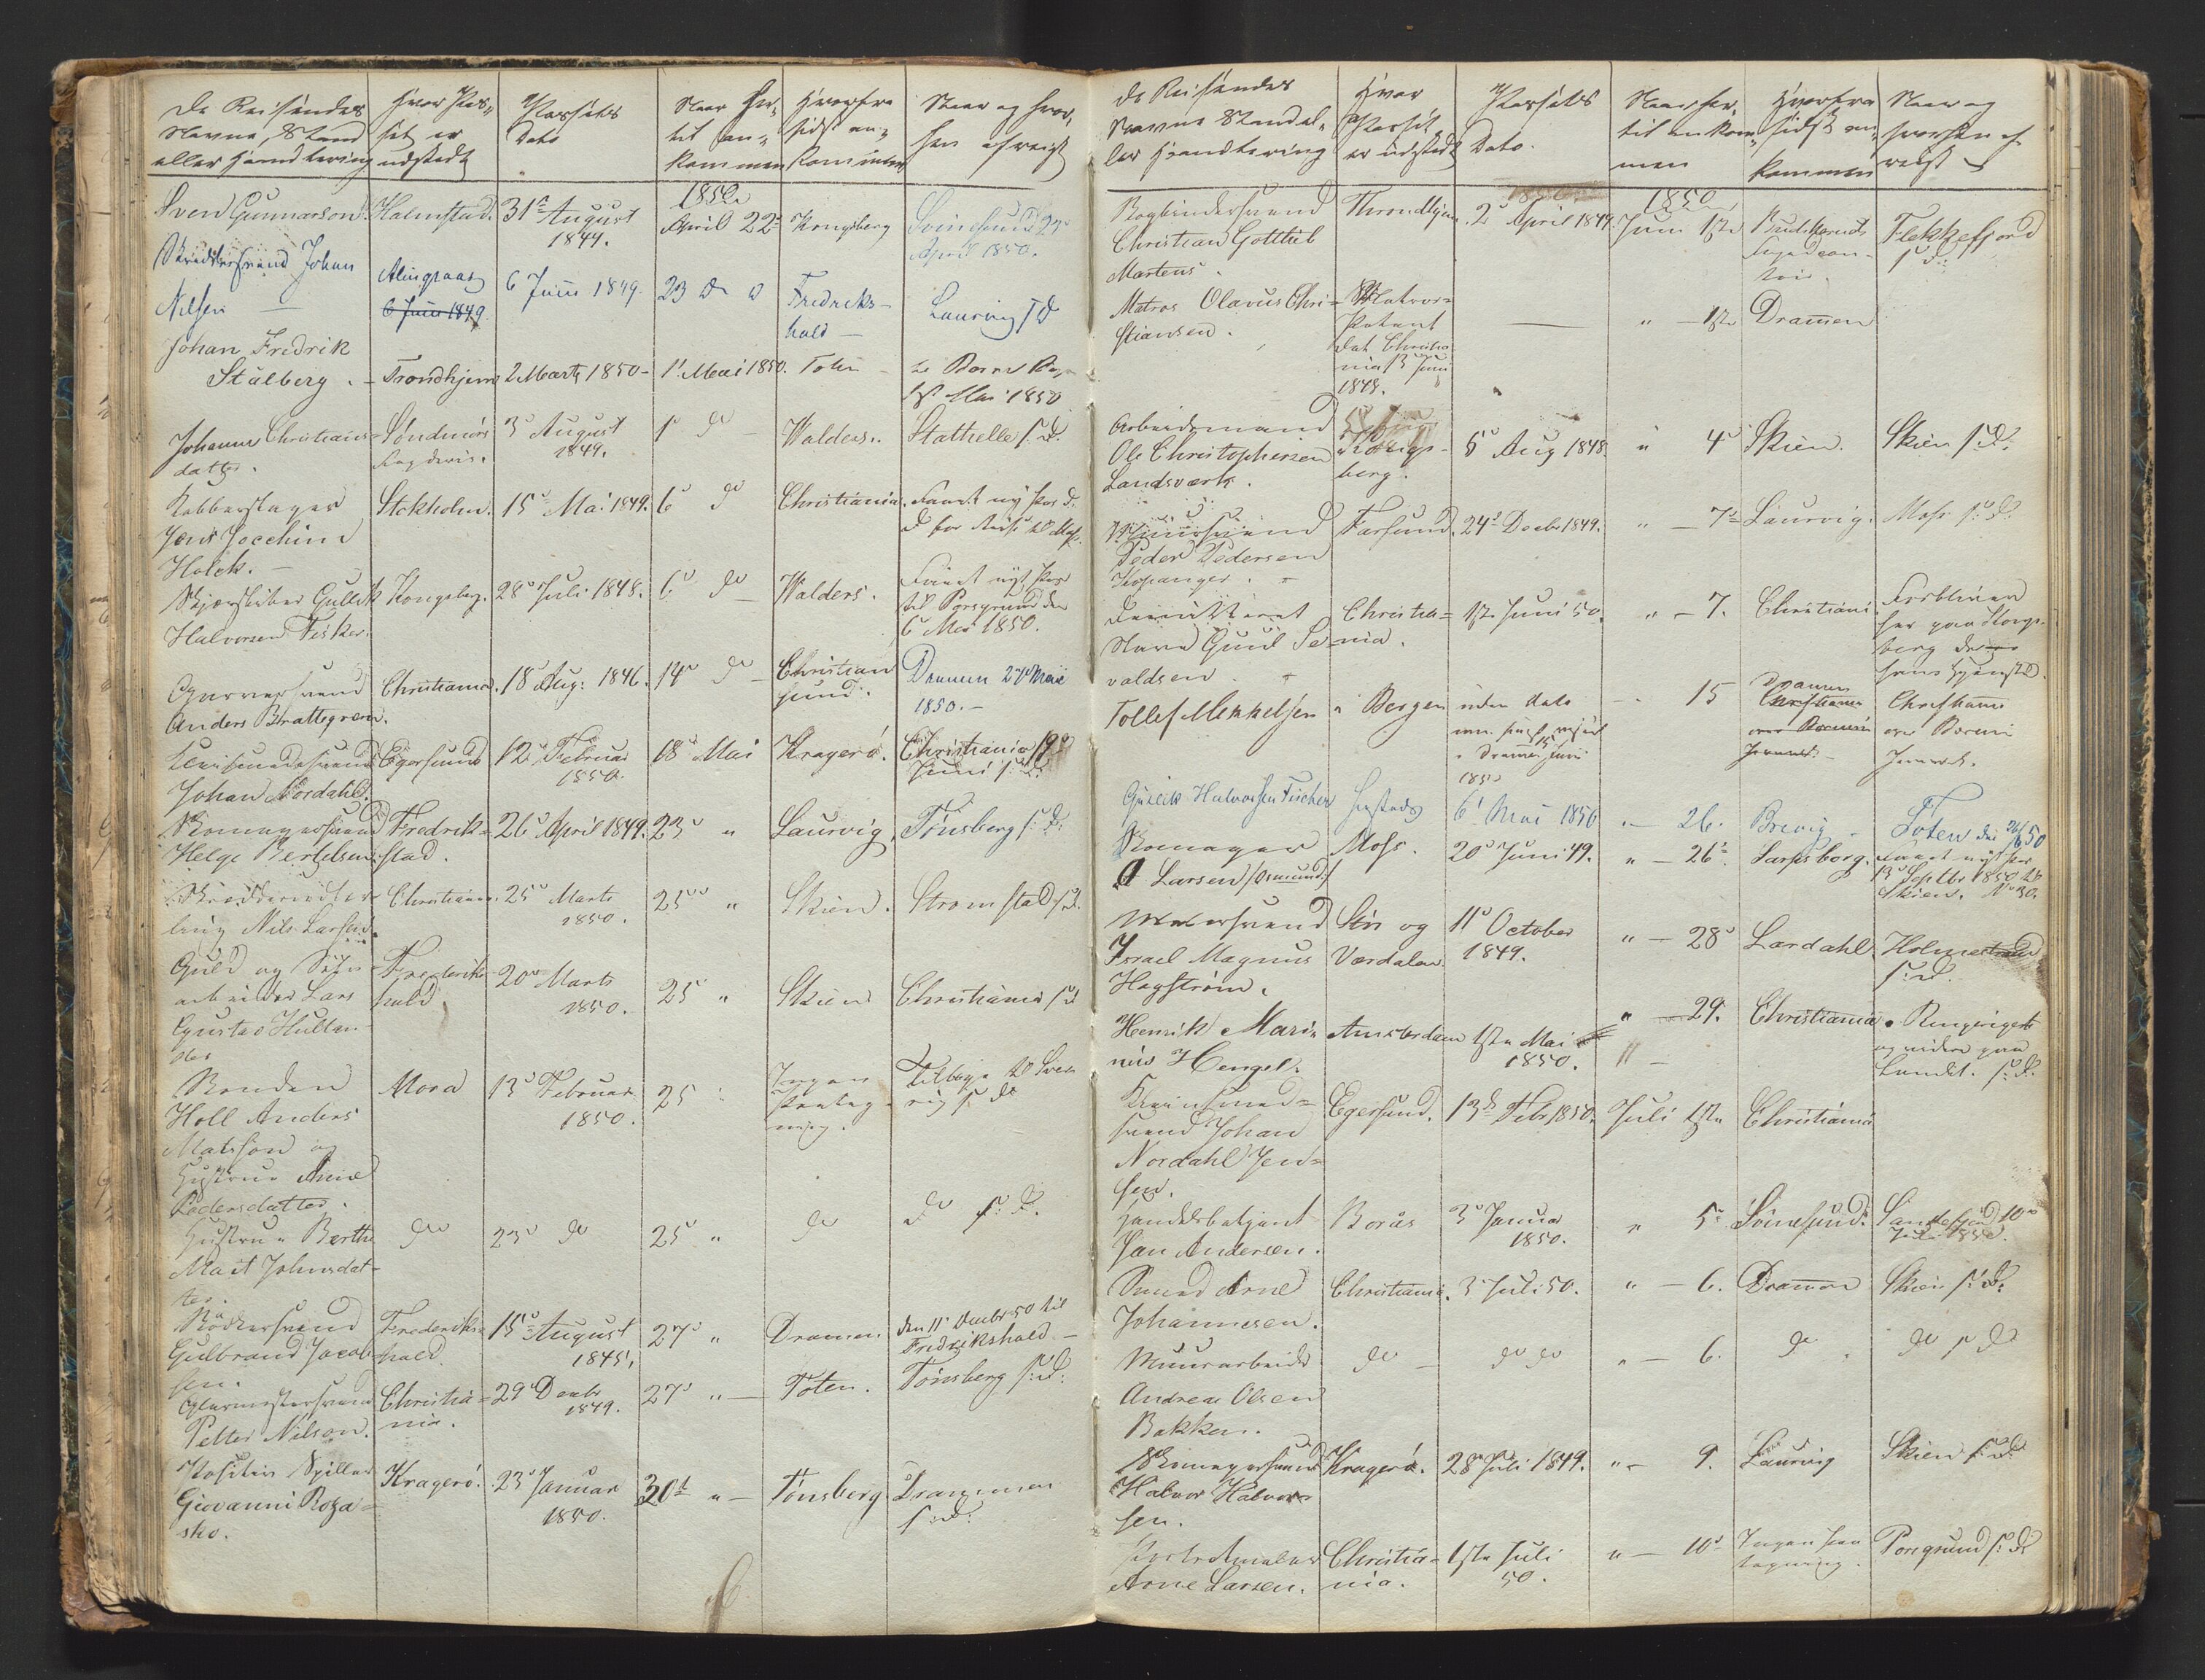 De Reisendes Navne, Stand eller Handtering | Hvor Passet er udstedt | Passets Dato | Naar her til ankommen | Hvorfra sidst ankommen | Naar og hvorhen afreist
Sven Gunnarson. | Halmstad. | 31te August 1849. | 1850 April 22de | Kongsberg | Svinesund 22 April 1850.
Skreddersvend Johan Nilsen — | Alingsaas | 6 Juni 1849. | 23 D D | Fredrikshald — | Laurvig s D
Johan Fredrik Stålberg. | Trondhjem | 2 Marts 1850 | 1 Mai 1850. | Toten | Mai 1850
Johanne Christiansdatter. | Søndmørs Fogderie. | 3 August 1849. | 1 do | Walders. | Stathelle s. D.
Kobberslager Jens Jocchim Holck. — | Stokholm. | 15 Mai 1849. | 6 d | Christiania. | Faaet ny Pas d. D for Reise til Moss.
Gullik Halvorsen Fisker. | Kongsberg. | 28 Juli 1848. | 6 do | Walders. | nyt Pas til Porsgrund den 6 Mai 1850.
Anders Brattegren. | Christiania. | 18 Aug: 1846. | 14 do | Christiansund. | Drammen 27 Mai 1850. —
Kleinsmedsvend Johan Nordahl. | Egersund | 12 Februar 1850. | 18 Mai | Kragerö. | Christiania 19 Juni s. D.
Skomagersvend Helge Bertelsen. | Fredrikstad. | 26 April 1849. | 23 " | Laurvig. | Tønsberg s. D.
Nils Larsen | Christiania. | 25 Marts 1850. | 25 " | Skien. | Strømstad s. D.
Guld og Sølvarbeider Lars Gustav | Frederikshald. | 20 Marts 1850. | 25 " | Skien | Christiania s. d
Bonden Holl Anders Matsson og Hustrue Anne Pedersdatter. | Mora | 13 Februar 1850. | 25 " | Ingen Paategning. | Tilbage til Sverrig s. D
Hustrue Berthe Marit Johnsdatter. | do | 23 do | 25 " | do | do s. D.
Bødkersvend Gulbrand Jacobsen. | Frederikshald. | 15 August 1845. | 27 " | Dramen | den 11 Decbr 50 til Fredrikshald —
Glarmestersvend Petter Nilson. | Christiania. | 29 Decbr 1849. | 27 " — | Toten. | Tønsberg s. D.
Positiv Spiller Giovanni Rozasko. | Kragerö. | 23 Januar 1850. | 30te " — | Tönsberg. | Drammen s. D.
De Reisendes Navne Stand eller Handtering | Hvor Passet er udstedt | Passets Dato. | Naar her til ankommen | Hvorfra sidst ankommen | Naar og hvorhen afreist
Bogbindersvend Christian Gottlieb Martens. | Throndhjem. | 2 April 1849. | 1850 Juni 1ste | Buskeruds Fogedcontoir. | Flekkefjord s D.
Matros Olavus Christiansen. | Patent dat Christiania 13 Juni 1849. | — | " — 1ste | Dramen
Arbeidsmand Ole Christophersen Landsværk. | Kongsberg. | 5 Aug 1848. | " 4 | Skien. | Skien s. D.
Peder Pedersen Kopanger. | Farsund. | 24 Decbr 1849. | " — 7 | Laurvig. | Moss s. D.
Demitteret Slave Guul Sevaldsen. | Christiania. | 1ste Juni 50. | " — 7. | Christiania | Forbliver her paa Kongsberg
Tollef Mikkelsen | Bergen | uden Dato Dramen 15 Juni 1850 | — 15 | Dramen | Christiania
Gulick Halvorsen Fischer | herstads | 6 Mai 1850 | " — 26. | Brevig | Toten den 26/6 50
Skomager A Larsen /Osmund/ | Moss. | 20 Juni 49. | " — 26 | Sarpsborg. | Faaet nyt Pas 13 Septbr 1850 til Skien. No 30.
Malersvend Israel Magnus Hagström. | Stör og Værdalen. | 11 October 1849. | " — 28 | Lærdahl | Holmestrand s. D.
Henrik Marinus Hengel. | Amsterdam | 1ste Mai 1850. | " — 29. | Christiania. | Ringerige og videre paa Landet. s. D.
Kleinsmedsvend Johan Nordahl Jensen. | Egersund. | 13de Febr 1850. | Juli 1ste | Christiania
Handelsbetjent Jan Andersen. | Borås | 3 Januar 1850. | " 5 | Svinesund. | Sandefjord 10 Juli 1850.
Smed Arne Johannesen. | Christiania. | 3 Juli 50. | " — 6. | Dramen | Skien s. D.
Muurarbeider Andreas Olsen Bakken. | do — | do do | " — 6. | do | do s D
Skomagersvend Halvor Halvorsen. | Kragerö. | 28 Juli 1849. | " — 9. | Laurvig | Skien s. D.
Arne Larsen. | Christiania. | 1ste Juli 50. | " — 10 | Ingen Paategning. | Porsgrund s. D.